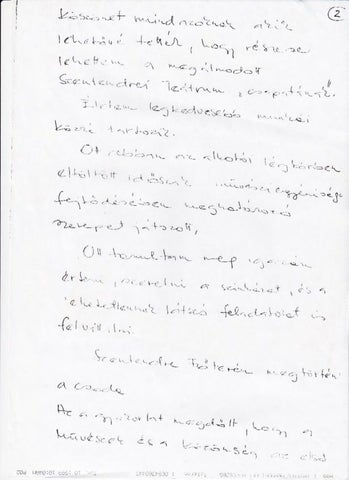 2
Köszönet mindazoknak akik
lehetővé tették, hogy részese
lehettem a megálmodott
Szentendrei Teátrum "csapatának".
Életem legkedvesebb munkái
közzé tartozik.
Ott abban az alkotói légkörben
eltöltött időszak művészegyéniségem
fejlődésében meghatározó
szerepet játszott,
Ott tanultam meg igazán
érteni, szeretni a színházat, és a
lehetetlennek látszó feladatokat is
felvállalni.
Szentendre Főterén megtörtént
a csoda
Az a gyakorlat megdőlt, hogy a
Művészek és a közönség az első